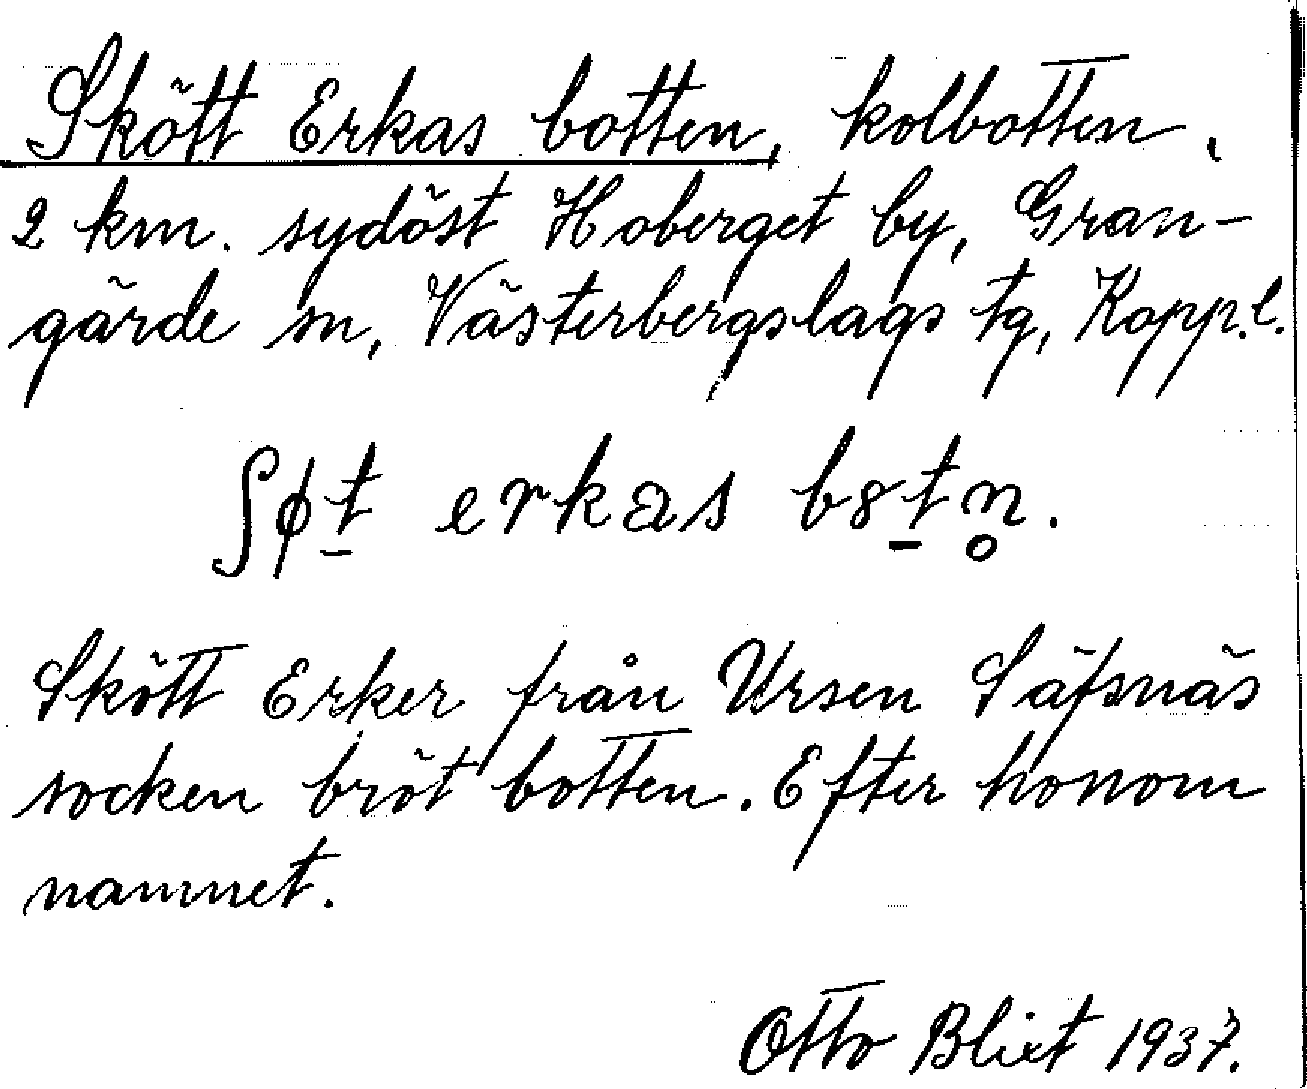 Skött Erkas botten, kolbotten,
2 km. sydöst Hoberget by, Gran-
gärde sn, Västerbergslags tg, Kopp.l.
ʃɸt̲ erkas b8t̲n̥.
Skött Erker från Ursen Säfsnäs
socken bröt botten. Efter honom
namnet.
Otto Blixt 1937.